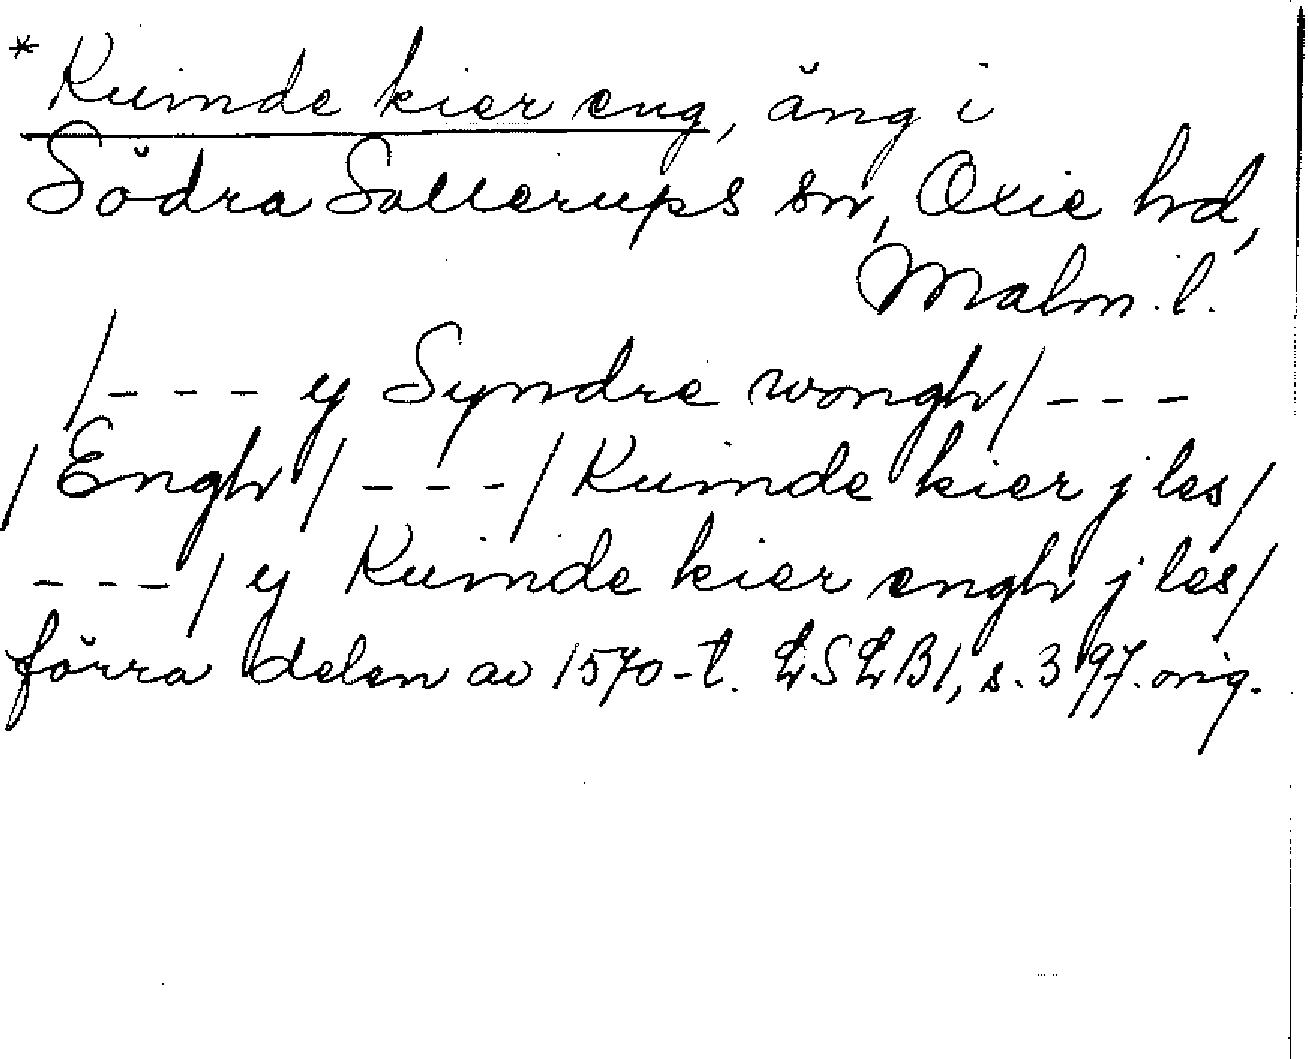 * Kuinde kier eng, äng i
Södra Sallerups sn, Oxie hd,
Malm. l.
/--- y Syndre wongh/ ---
/Engh/ ---/ Kuinde kier j les/
---/ y Kuinde kier engh j les/
förra delen av 1570-t. LSLB1, s. 397. orig.